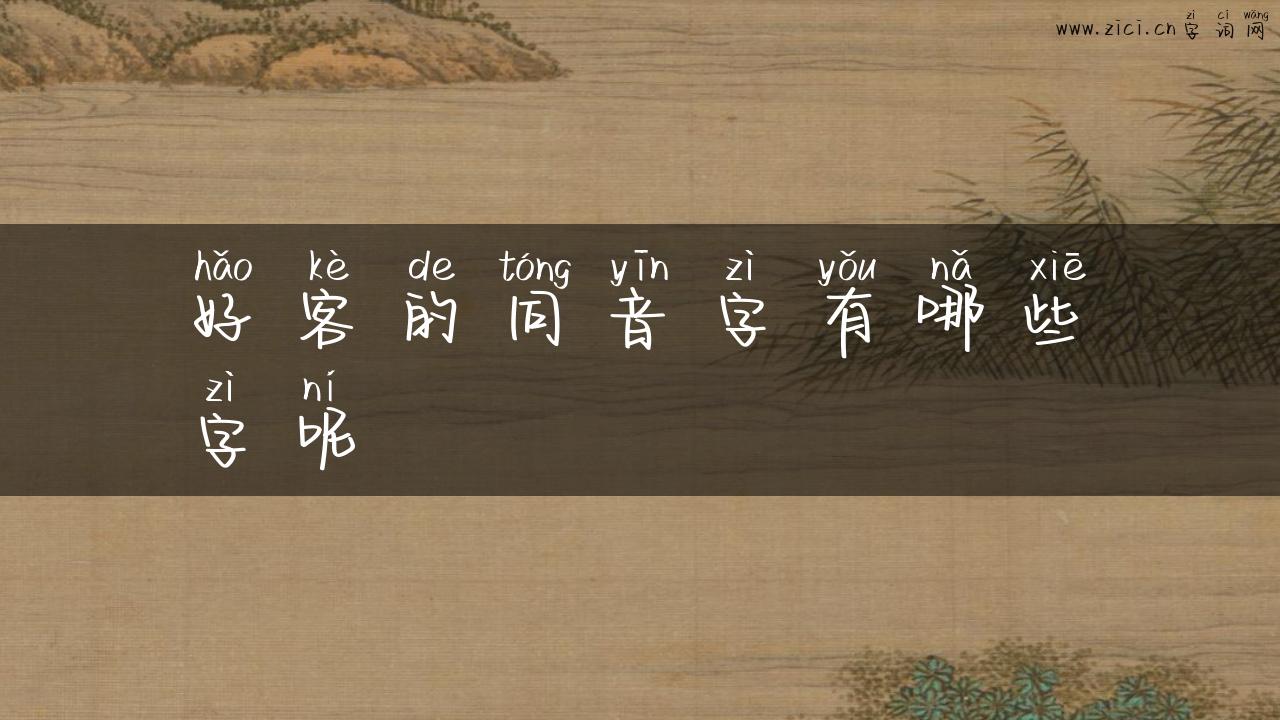 www.zici.cn zì cí wǎng
字词网
hǎo kè de tóng yīn zì yǒu nǎ xiē
好客的同音字有哪些
zì ní
字呢